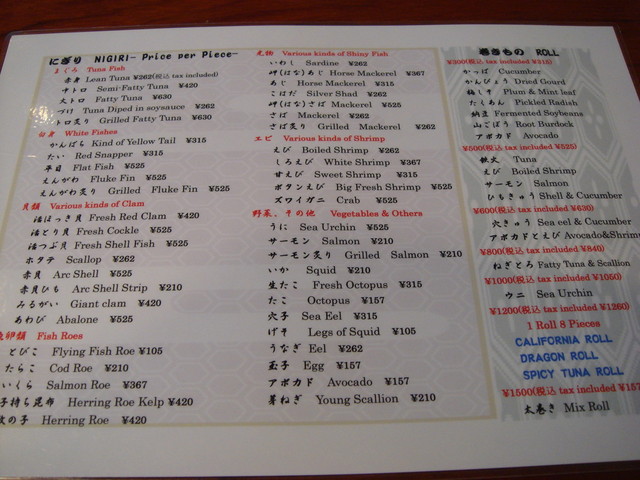 にぎり NIGIRI- Price per Piece-
まぐろ Tuna Fish
赤身 Lean Tuna ¥262(税込 tax included)
中トロ Semi-Fatty Tuna ¥420
大トロ Fatty Tuna ¥630
づけ Tuna Diped in soysauce ¥262
トロ炙り Grilled Fatty Tuna ¥630
白身 White Fishes
かんぱち Kind of Yellow Tail ¥315
たい Red Snapper ¥315
平目 Flat Fish ¥525
えんがわ Fluke Fin ¥525
えんがわ炙り Grilled Fluke Fin ¥525
貝類 Various kinds of Clam
活ほっき貝 Fresh Red Clam ¥420
活とり貝 Fresh Cockle ¥525
活つぶ貝 Fresh Shell Fish ¥525
ホタテ Scallop ¥262
赤貝 Arc Shell ¥525
赤貝ひも Arc Shell Strip ¥210
みるがい Giant clam ¥420
あわび Abalone ¥525
魚卵類 Fish Roes
とびこ Flying Fish Roe ¥105
たらこ Cod Roe ¥210
いくら Salmon Roe ¥367
子持ち昆布 Herring Roe Kelp ¥420
数の子 Herring Roe ¥420
光物 Various kinds of Shiny Fish
いわし Sardine ¥262
岬(はな)あじ Horse Mackerel ¥367
あじ Horse Mackerel ¥315
こはだ Silver Shad ¥262
岬(はな)さば Mackerel ¥525
さば Mackerel ¥262
さば炙り Grilled Mackerel ¥262
エビ Various kinds of Shrimp
えび Boiled Shrimp ¥262
しろえび White Shrimp ¥367
甘えび Sweet Shrimp ¥315
ボタンえび Big Fresh Shrimp ¥525
ズワイガニ Crab ¥525
野菜、その他 Vegetables & Others
うに Sea Urchin ¥525
サーモン Salmon ¥210
サーモン炙り Grilled Salmon ¥210
いか Squid ¥210
生たこ Fresh Octopus ¥315
たこ Octopus ¥157
穴子 Sea Eel ¥315
げそ Legs of Squid ¥105
うなぎ Eel ¥262
玉子 Egg ¥157
アボカド Avocado ¥157
芽ねぎ Young Scallion ¥210
巻きもの ROLL
¥300(税込 tax included ¥315)
かっぱ Cucumber
かんぴょう Dried Gourd
梅しそ Plum & Mint leaf
たくあん Pickled Radish
納豆 Fermented Soybeans
山ごぼう Root Burdock
アボカド Avocado
¥500(税込 tax included ¥525)
鉄火 Tuna
えび Boiled Shrimp
サーモン Salmon
ひもきゅう Shell & Cucumber
¥600(税込 tax included ¥630)
穴きゅう Sea eel & Cucumber
アボカドとえび Avocado&Shrim
¥800(税込 tax included ¥840)
ねぎとろ Fatty Tuna & Scallion
¥1000(税込 tax included ¥1050)
ウニ Sea Urchin
¥1200(税込 tax included ¥1260)
1 Roll 8 Pieces
CALIFORNIA ROLL
DRAGON ROLL
SPICY TUNA ROLL
¥1500(税込 tax included ¥157
太巻き Mix Roll